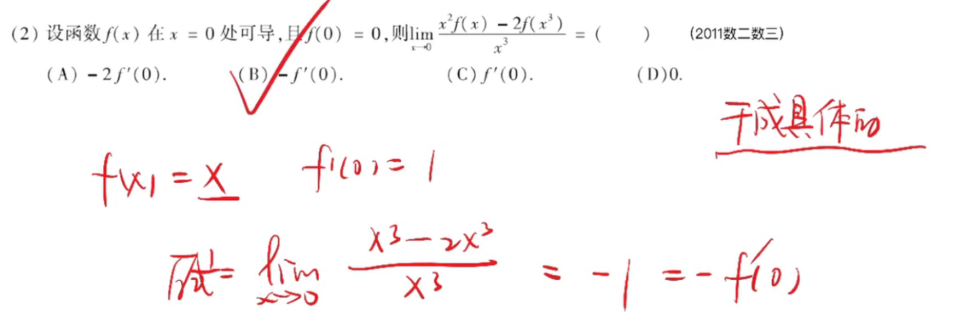 (2) 设函数 f(x) 在 x = 0 处可导,且 f(0) = 0,则 lim_{x→0} \frac{x²f(x) - 2f(x³)}{x³} = (  ) (2011数二数三)
(A) - 2f′(0). (B) - f′(0). (C) f′(0). (D) 0.
干成具体的
f(x) = x f′(0) = 1
原式 = lim_{x→0} \frac{x³ - 2x³}{x³} = -1 = -f′(0)